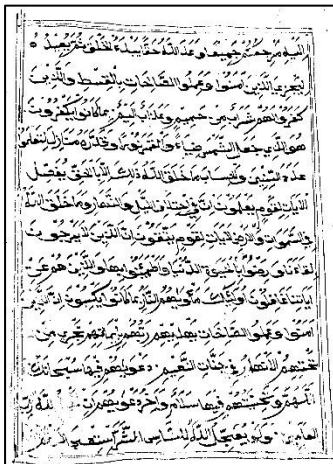 اليه مرجعكم جميعا وعد الله حقا انه يبدؤا الخلق ثم يعيده
ليجزي الذين امنوا وعملوا الصالحات بالقسط والذين
كفروا لهم شراب من حميم وعذاب اليم بما كانوا يكفرون
هو الذي جعل الشمس ضياء والقمر نورا وقدره منازل لتعلموا
عدد السنين والحساب ما خلق الله ذلك الا بالحق يفصل
الايات لقوم يعلمون ان في اختلاف اليل والنهار وما خلق الله
في السموات والارض لايات لقوم يتقون ان الذين لا يرجون
لقاءنا ورضوا بالحيوة الدنيا واطمانوا بها والذين هم عن
اياتنا غافلون اولئك ماويهم النار بما كانوا يكسبون ان الذين
امنوا وعملوا الصالحات يهديهم ربهم بايمانهم تجري من
تحتهم الانهار في جنات النعيم دعويهم فيها سبحانك
اللهم وتحيتهم فيها سلام واخر دعويهم ان لله رب
العالمين ولو يعجل الله للناس الشر